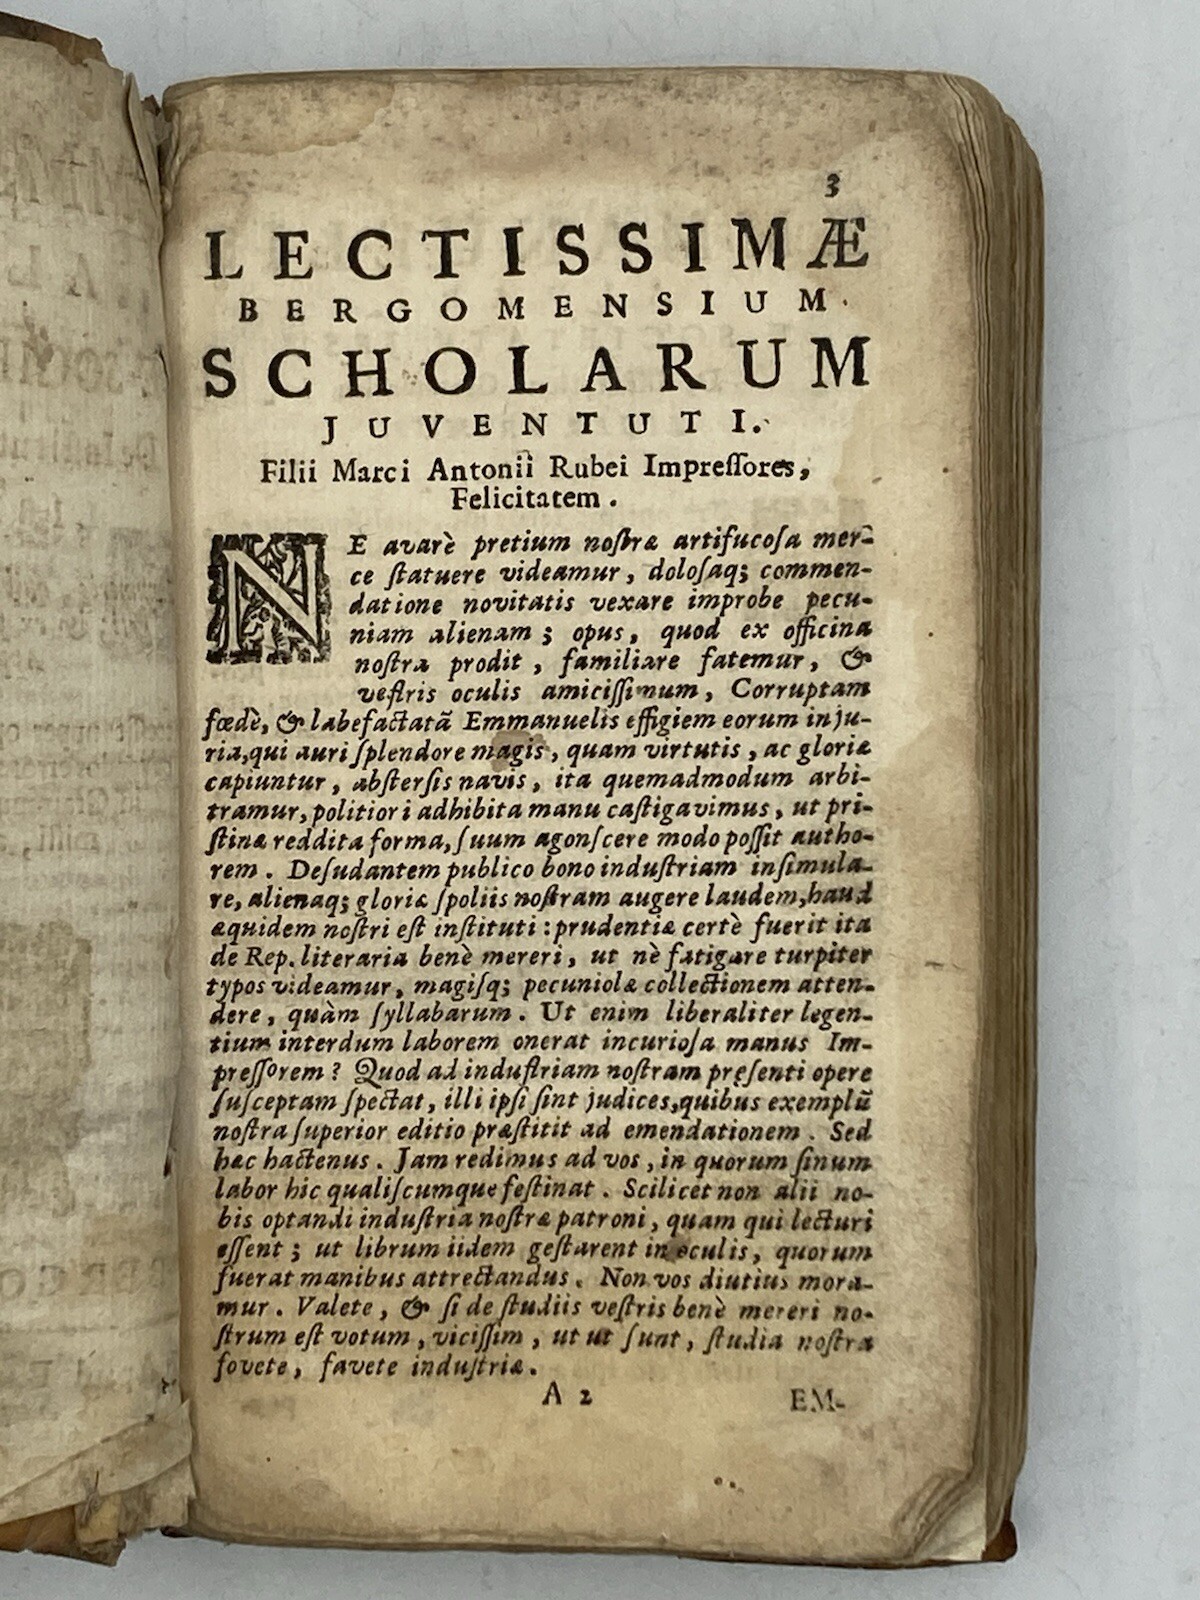 3
LECTISSIMÆ
BERGOMENSIUM
SCHOLARUM
JUVENTUTI.
Filii Marci Antonii Rubei Impreſſores,
Felicitatem.
NE avarè pretium noſtræ artifucoſa mer-
ce ſtatuere videamur, doloſaq; commen-
datione novitatis vexare improbe pecu-
niam alienam; opus, quod ex officina
noſtra prodit, familiare fatemur, &
veſtris oculis amiciſſimum, Corruptam
fœdè, & labefactatã Emmanuelis effigiem eorum inju-
ria, qui auri ſplendore magis, quam virtutis, ac gloriæ
capiuntur, abſterſis navis, ita quemadmodum arbi-
tramur, politiori adhibita manu caſtigavimus, ut pri-
ſtinæ reddita forma, ſuum agonſcere modo poſſit autho-
rem. Deſudantem publico bono induſtriam inſimula-
re, alienaq; gloriæ ſpoliis noſtram augere laudem, haud
æquidem noſtri eſt inſtituti: prudentiæ certè fuerit ita
de Rep. literaria benè mereri, ut nè fatigare turpiter
typos videamur, magiſq; pecuniolæ collectionem atten-
dere, quàm ſyllabarum. Ut enim liberaliter legen-
tium interdum laborem onerat incurioſa manus Im-
preſſorem? Quod ad induſtriam noſtram pręſenti opere
ſuſceptam ſpectat, illi ipſi ſint judices, quibus exemplũ
noſtra ſuperior editio præſtitit ad emendationem. Sed
hæc hactenus. Jam redimus ad vos, in quorum ſinum
labor hic qualiſcumque feſtinat. Scilicet non alii no-
bis optandi induſtria noſtræ patroni, quam qui lecturi
eſſent; ut librum iidem geſtarent in oculis, quorum
fuerat manibus attrectandus. Non vos diutius mora-
mur. Valete, & ſi de ſtudiis veſtris benè mereri no-
ſtrum eſt votum, viciſſim, ut ut ſunt, ſtudia noſtra
fovete, favete induſtriæ.
A 2 EM-